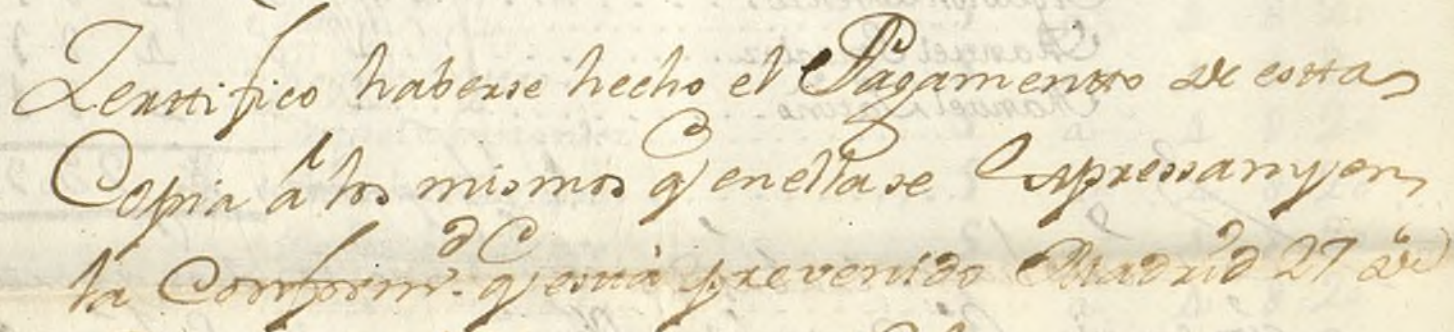 Zerttifico haberse hecho el Pagamentto de estta
Copia â los mismos q̃ en ella se Expressan y en
la Conformd. q̃ está prevenido Madrid 27 de